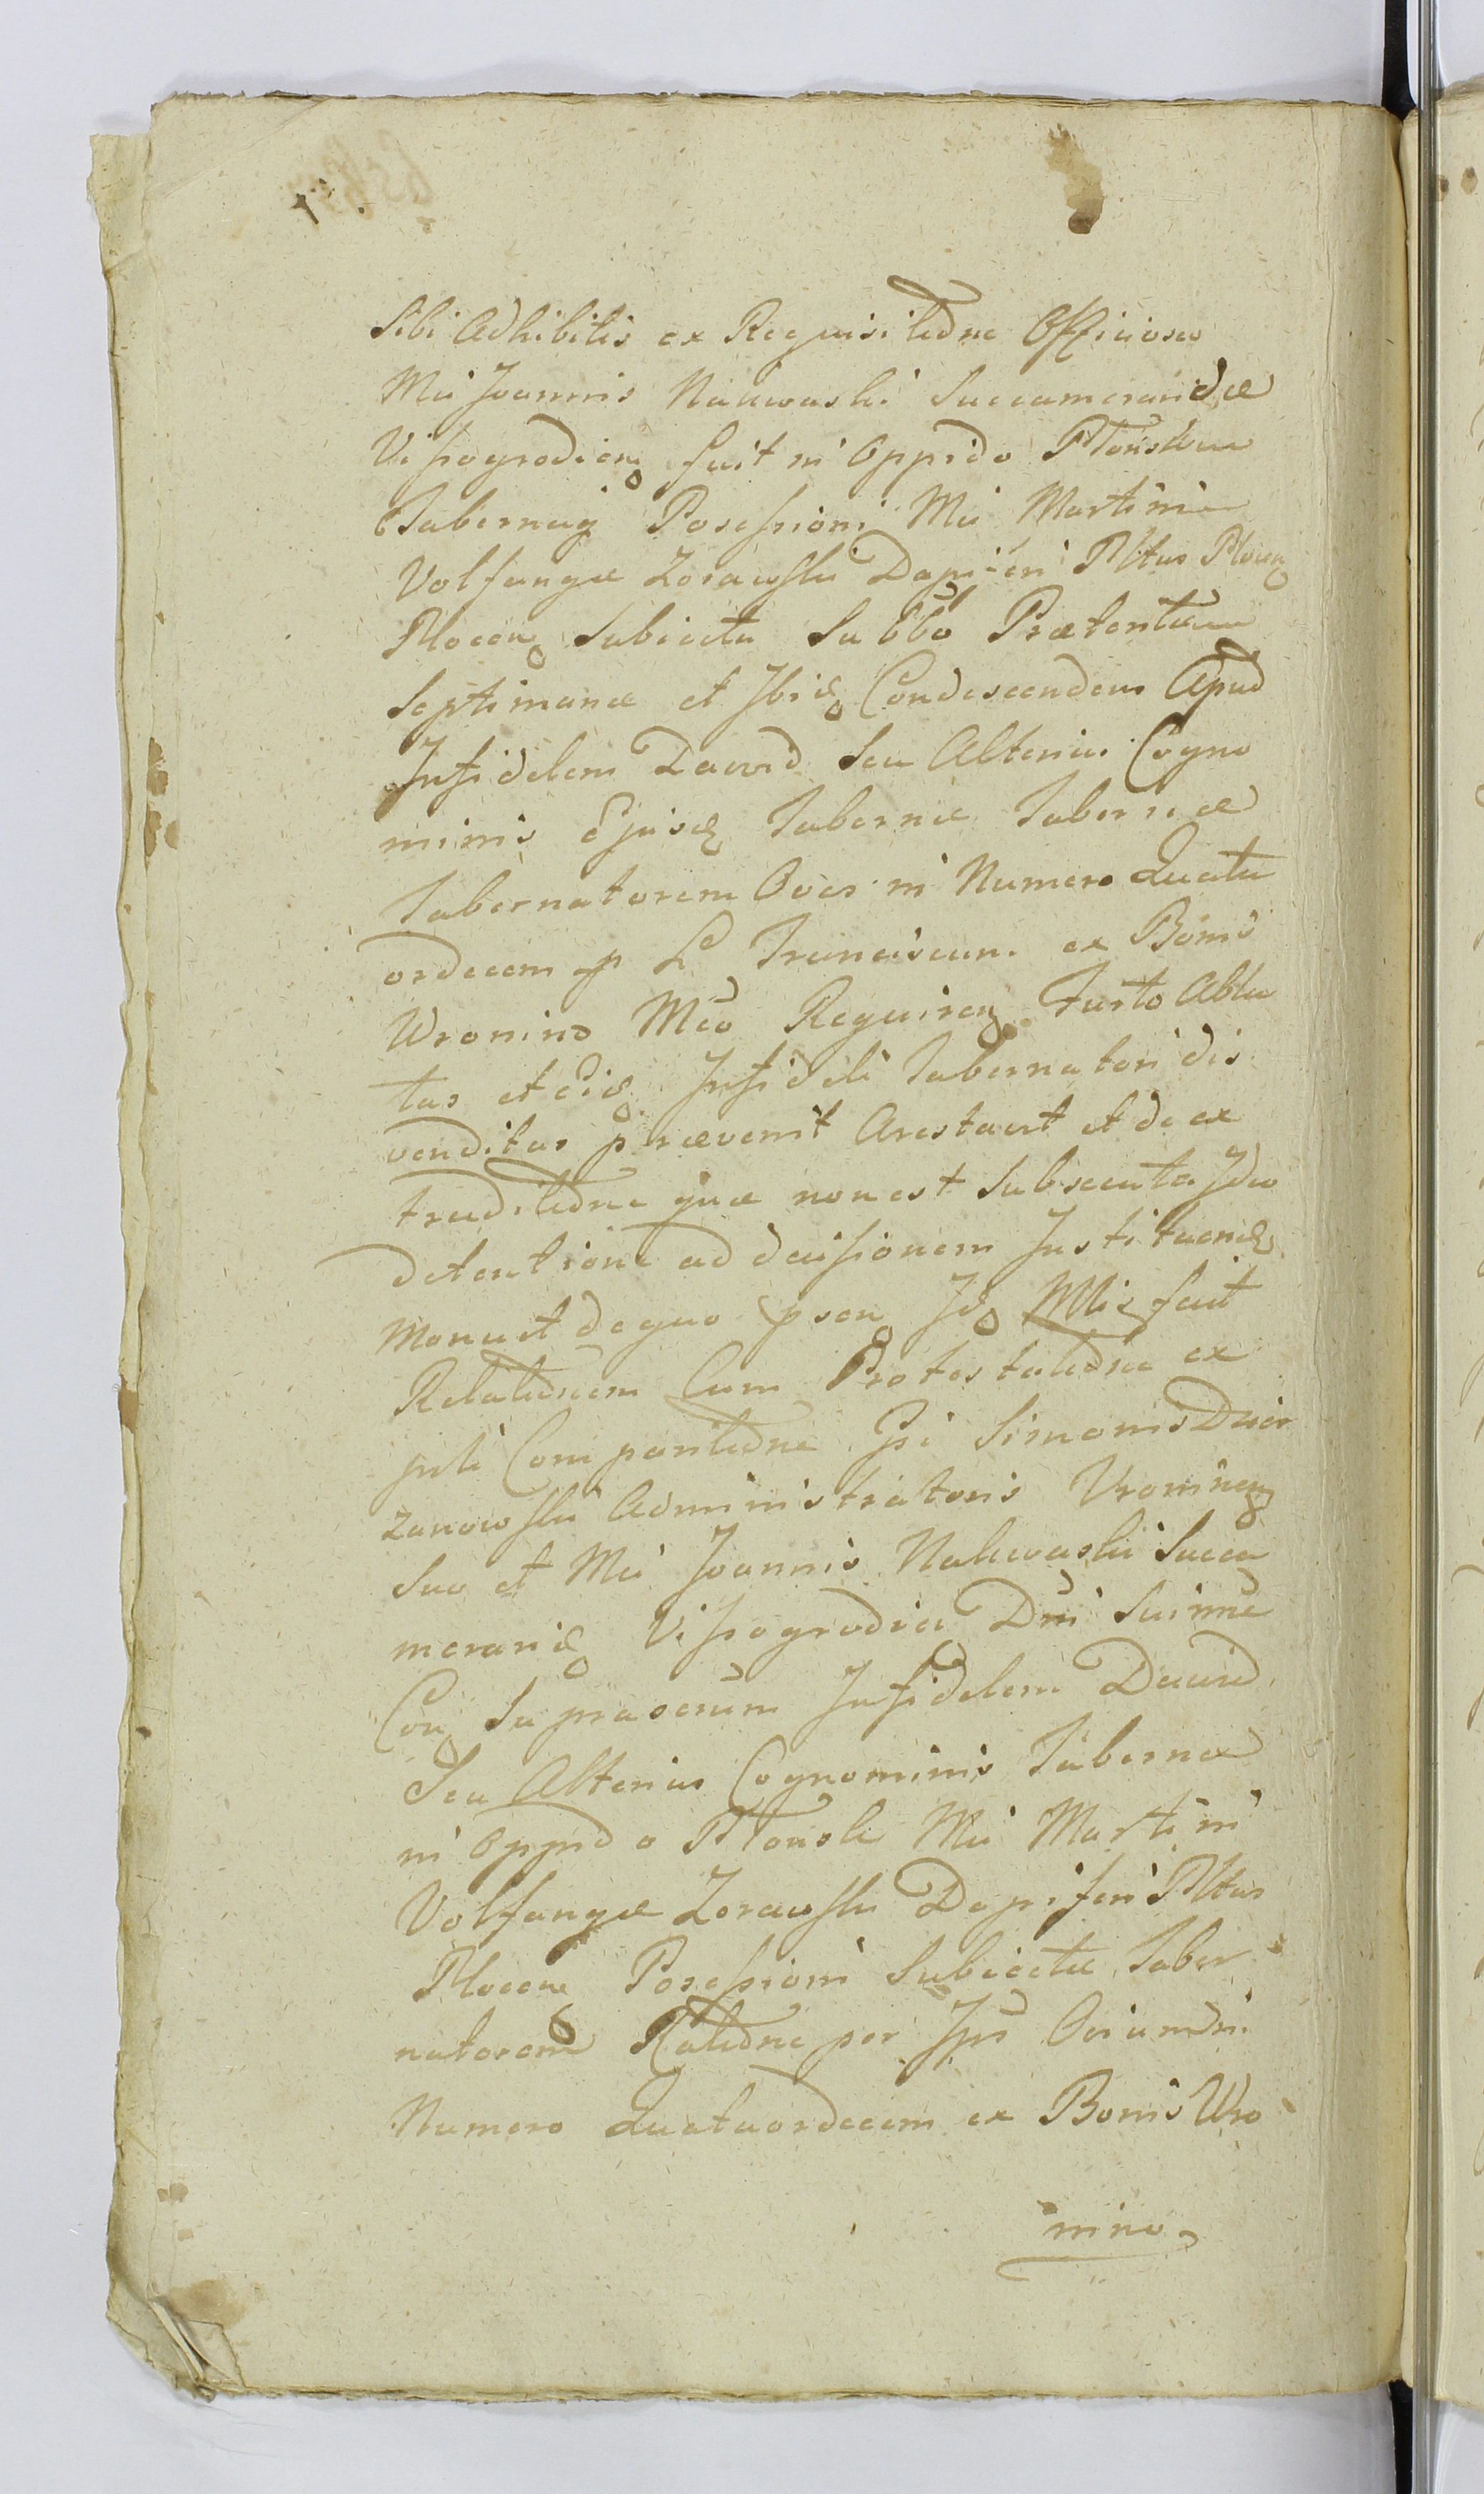 Sibi Adhibitis ex Requisitione Officiosa
Mci Joannis Nakwaski Succameraridæ
Vissogrodien fuit in Oppido Płonsk
Tabernaq Posessioni Mci Martini
Volfangæ Zorawski Dapiferi Pltus Plocen
Plocen Subiecta Sabbo Præterita
Septimanæ et Ibid Condescendens Apud
Infidelem Dawid Seu Alterius Cogno
minis Ejusd Tabernæ Tabernæ
Tabernatorem Oves in Numero Quatu
ordecem p L Franciscum ex Bonis
Wronino Mco Requiren Furto Abla
tas et eid Infideli Tabernatori dis
venditas prævenit Arestavit et de ex
traditione quæ non est Subsecuta Ideo
detentione ad decisionem Instituend
Monuit de quo psen Id Mlis fecit
Relationem Cum Protestatione ex
psti Comparitione Gsi Simonis Dzier
zanowski Administratoris Wroninen
Suo et Mci Joannis Nakwaski Succa
merarid Vissogrodien Dni Sui nne
Con Suprascrum Infidelem Dawid
Seu Alterius Cognominis Tabernæ
in Oppido Płonsk Mci Martini
Volfangæ Zorawski Dapiferi Pltus
Plocen Posessioni Subiectæ Taber
natorem Ratione per Ips Ovium in
Numero Quatuordecem ex Bonis Wro
nino